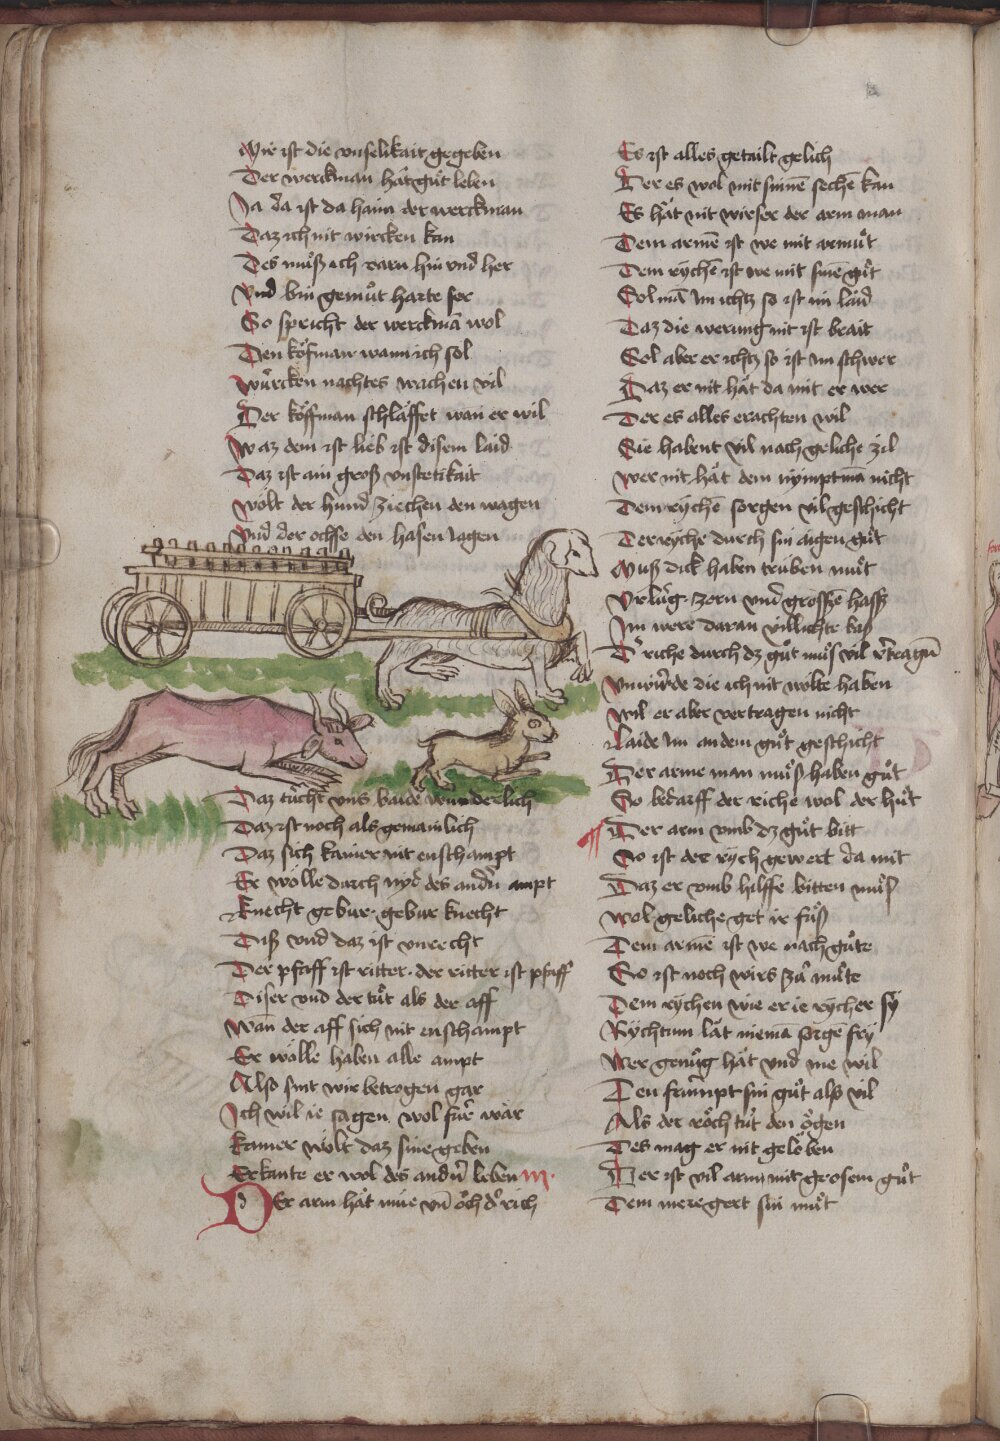 Mir ist die vnselikait gegeben
Der werckman hāt gůt leben
Ja da ist da haim der werckman
Daz ich nit wircken kan
Des můß ich varn hin vnd her
Vnd bin gemůt harte ser
So spricht der werckmā wol
Den köfman wann ich sol
Würcken nachtes wachen vil
Der köffman schläffet wan er wil
Waz dem ist lieb ist disem laid
Daz ist ain groß vnstetikait
Wölt der hund ziechen den wagen
Vnd der ochse den hasen Jagen
Daz tücht vns baide wunderlich
Daz ist noch als gemainlich
Daz sich kainer nit enschampt
Er wölle durch nyd des andn̄ ampt
Knecht gebur · gebur knecht
Diß vnd daz ist vnrecht
Der pfaff ist ritter · der ritter ist pfaff
Diser vnd der tůt als der aff
Wan der aff sich nit enschampt
Er wölle haben alle ampt
Also sint wir betrogen gar
Ich wil ie sagen wol für wār
Kainer wölt daz sine geben
Erkante er wol des andn̄ leben
Der arm hāt müe vn̄ öch dr̄ rich
Es ist alles getailt gelich
Der es wol mit sinnē sechē kan
Es hāt nit wirser der arm man
Dem armē ist we mit armůt
Dem rychē ist we mit sinē gůt
Sol mā Im ichtz so ist im laid
Daz die werung nit ist brait
Sol aber er ichtz so ist im schwer
Daz er nit hāt da mit er wer
Der es alles erachten wil
Sie habent vil nach geliche zil
Wer nit hāt dem nympt mā nicht
Dem rychē sorgen vil geschicht
Der ryche durch sin aigen gůt
Muß dick haben trüben můt
Vrlüg · zorn vnd grossze hassz
Im were daran villichte bas
Dr̄ riche durch dz gůt můs vil v̄tragn̄
Vnwirde die ich nit wölte haben
Wil er aber vertragen nicht
Laide Im an dem gůt geschicht
Der arme man můß haben gůt
So bedarff der riche wol der hůt
Der arm vmb dz gůt bitt
So ist der rych gewert da mit
Daz er vmb hilffe bitten můß
Wol geliche get ir fůß
Dem armē ist we nach gůte
So ist noch wirs zů můte
Dem rychen wie er ie rycher sy
Rychtum lāt niemā sorge fry
Wer genůg hāt vnd me wil
Den frumpt sin gůt alß vil
Als der röch tůt den ögen
Des mag er nit gelöben
Der ist vil arm mit grosem gůt
Dem mere gert sin můt